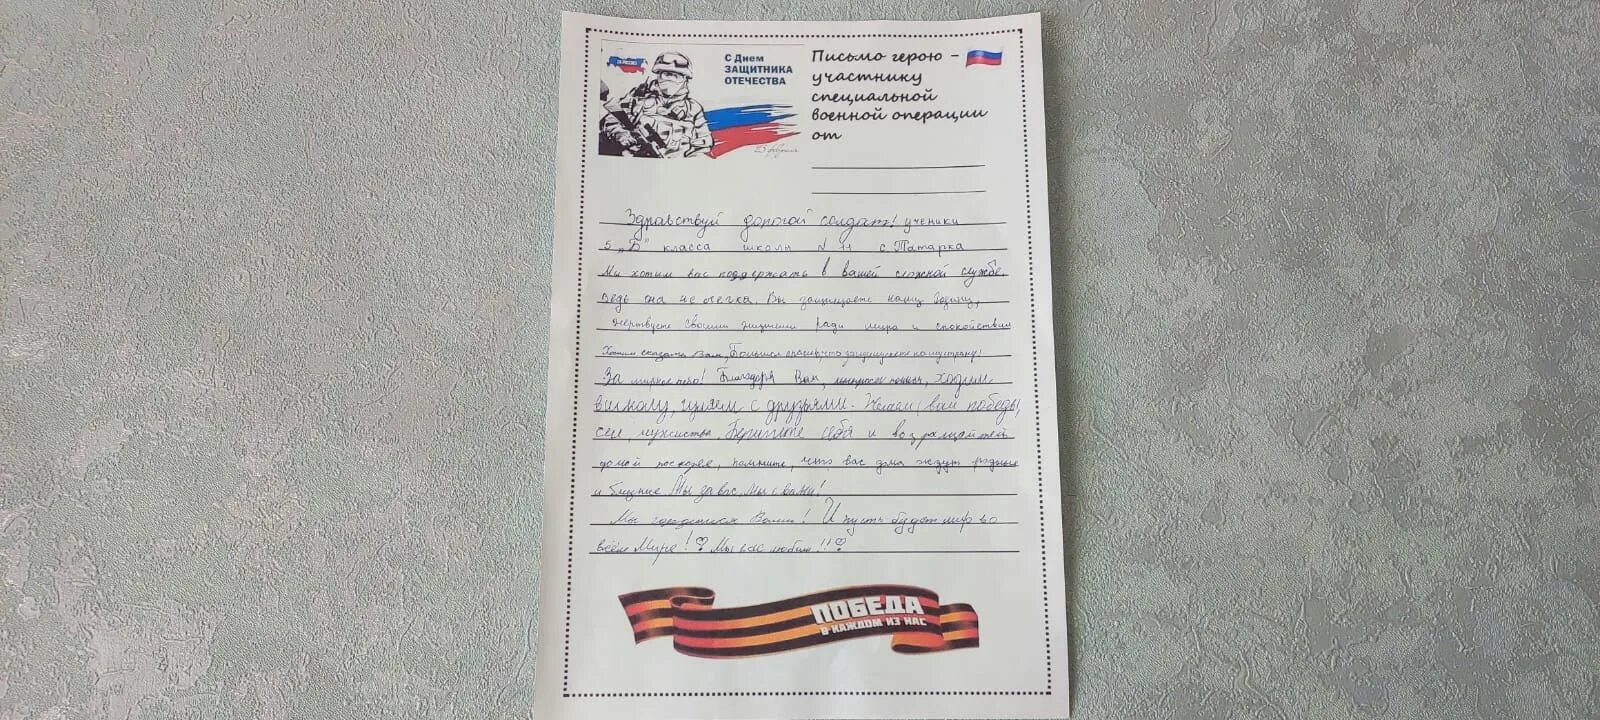 ZА РОССИЮ
С Днем
ЗАЩИТНИКА
ОТЕЧЕСТВА
23 февраля
Письмо герою –
участнику
специальной
военной операции
от
Здравствуй дорогой солдат! ученики
5 „Б" класса школы № 11 с. Татарка
Мы хотим вас поддержать в вашей сложной службе
ведь она не легка. Вы защищаете нашу Родину,
жертвуете своими жизнями ради мира и спокойствия
Хотим сказать Вам, Большое спасибо, что защищаете нашу страну!
За мирное небо! Благодаря Вам, ходим
в школу, гуляем с друзьями. Желаем вам победы,
сил, мужества. Берегите себя и возращайтесь
домой поскорее, помните, что вас дома ждут родные
и близкие Мы за вас. Мы с вами!
Мы гордимся Вами! И пусть будет мир во
всём Мире! Мы вас любим!!
ПОБЕДА
В КАЖДОМ ИЗ НАС